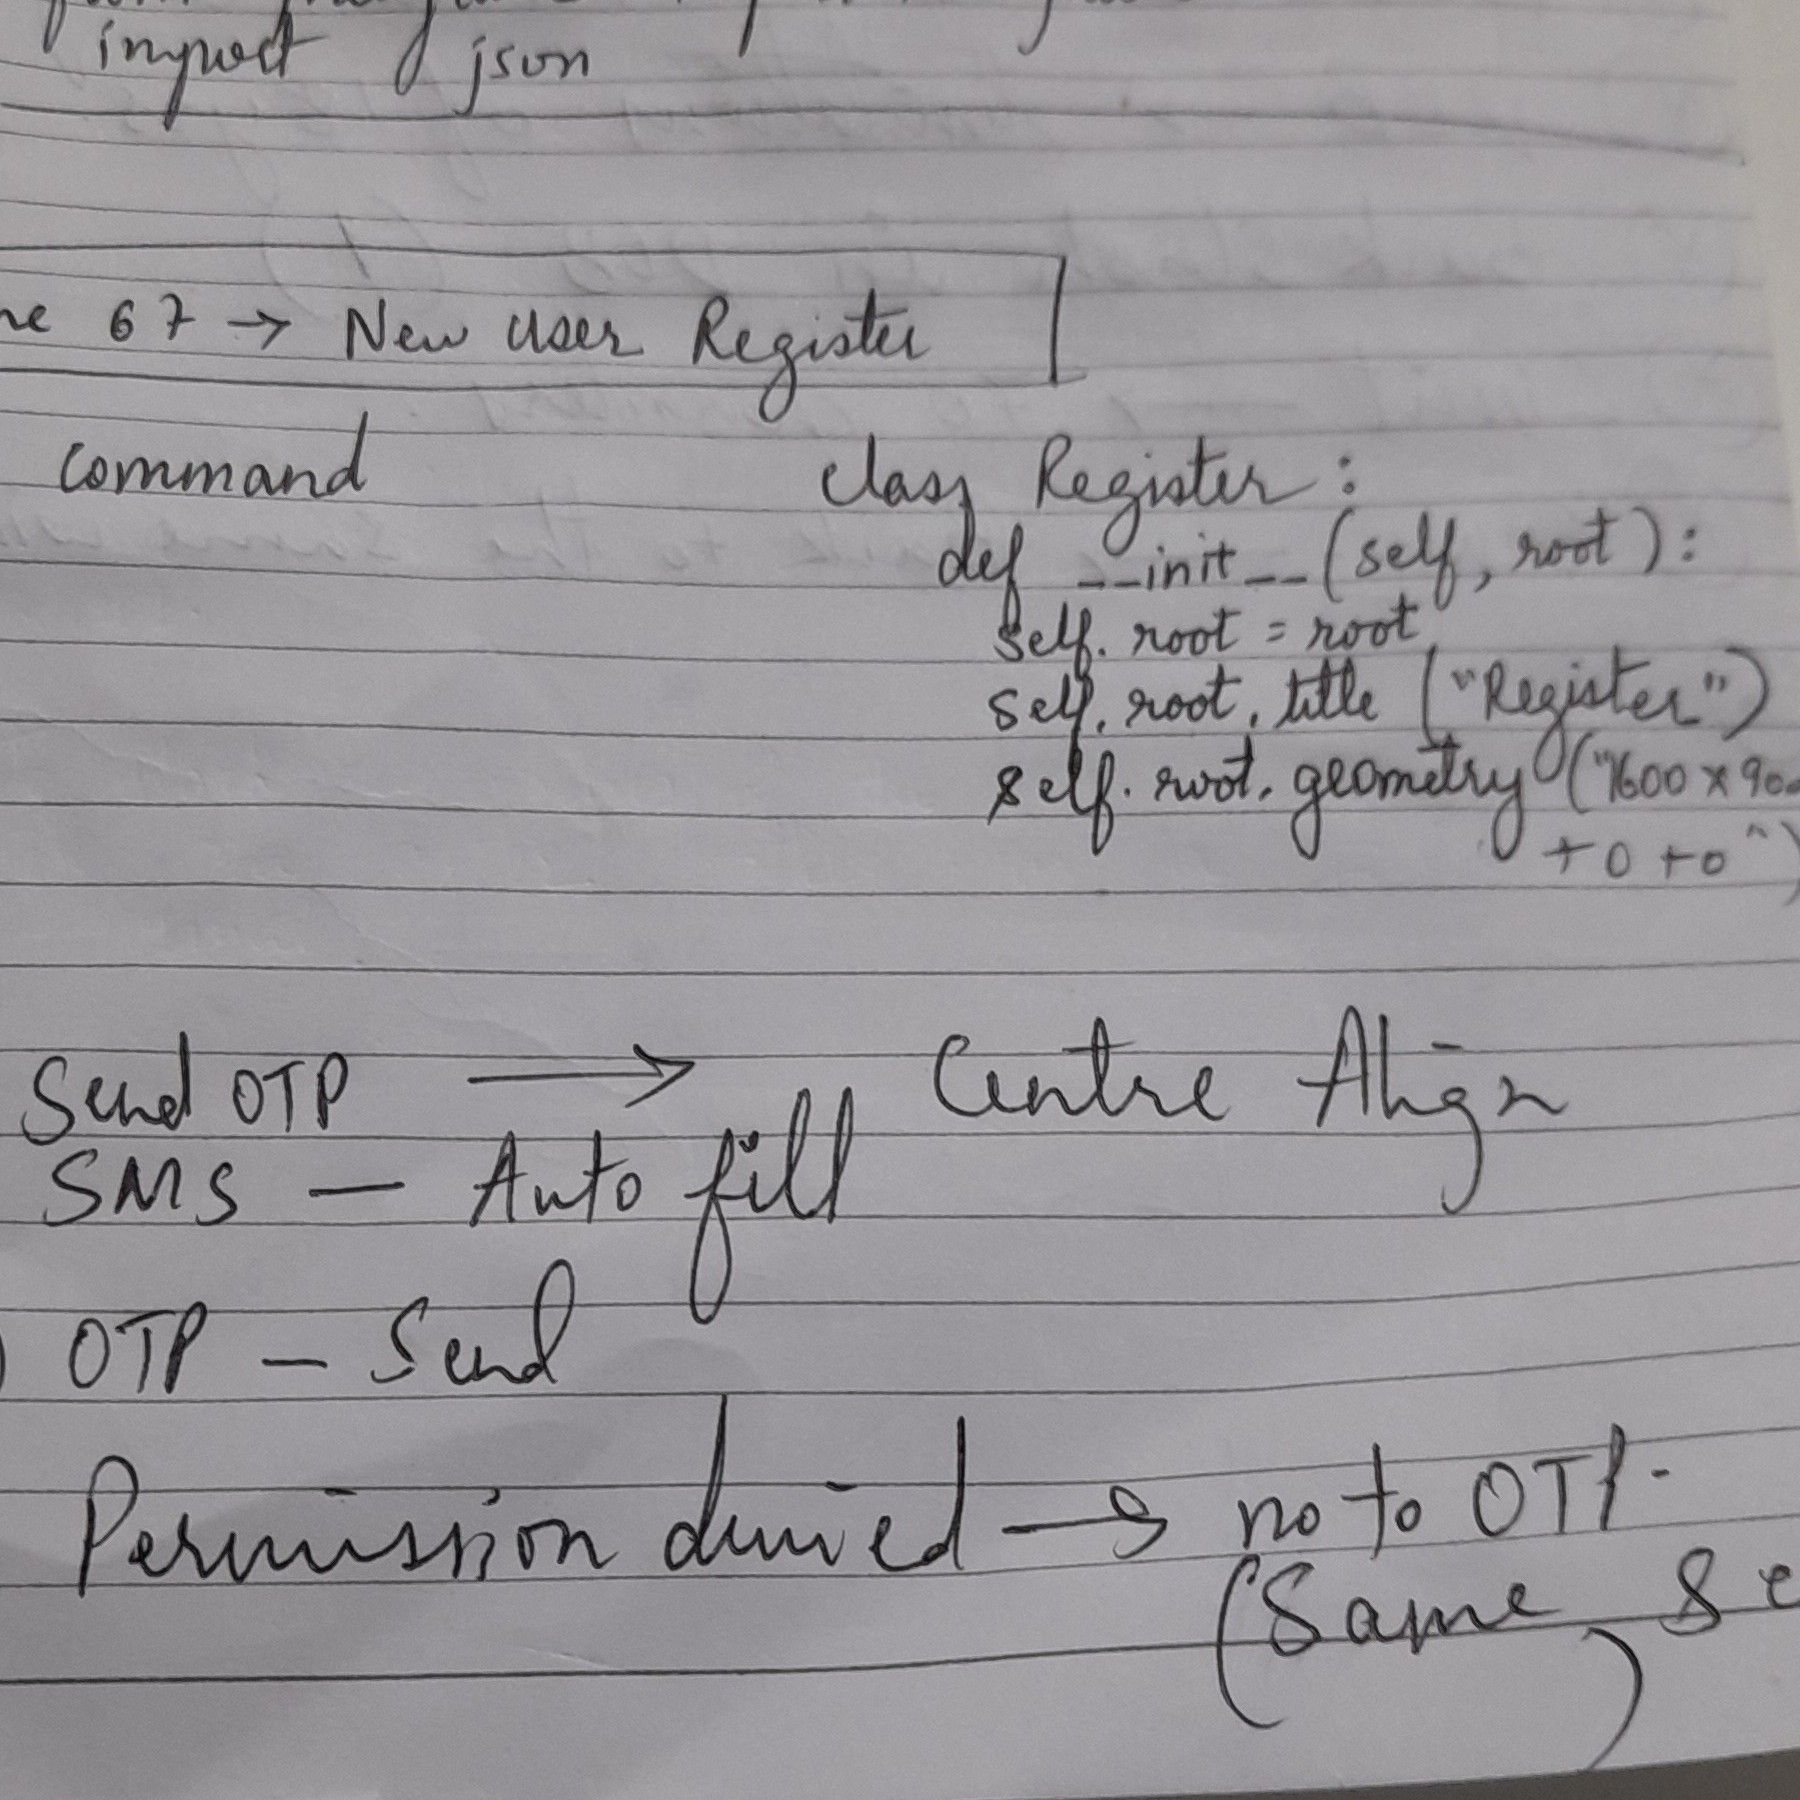 import json
67 → New User Register
Command
class Register :
def __init__ (self, root) :
self. root = root
self. root. title ("Register")
self. root. geometry ("1600 x 900
+0 +0")
Send OTP → Centre Align
SMS — Auto fill
OTP – Send
Permission denied → no to OTP.
(Same Se
)